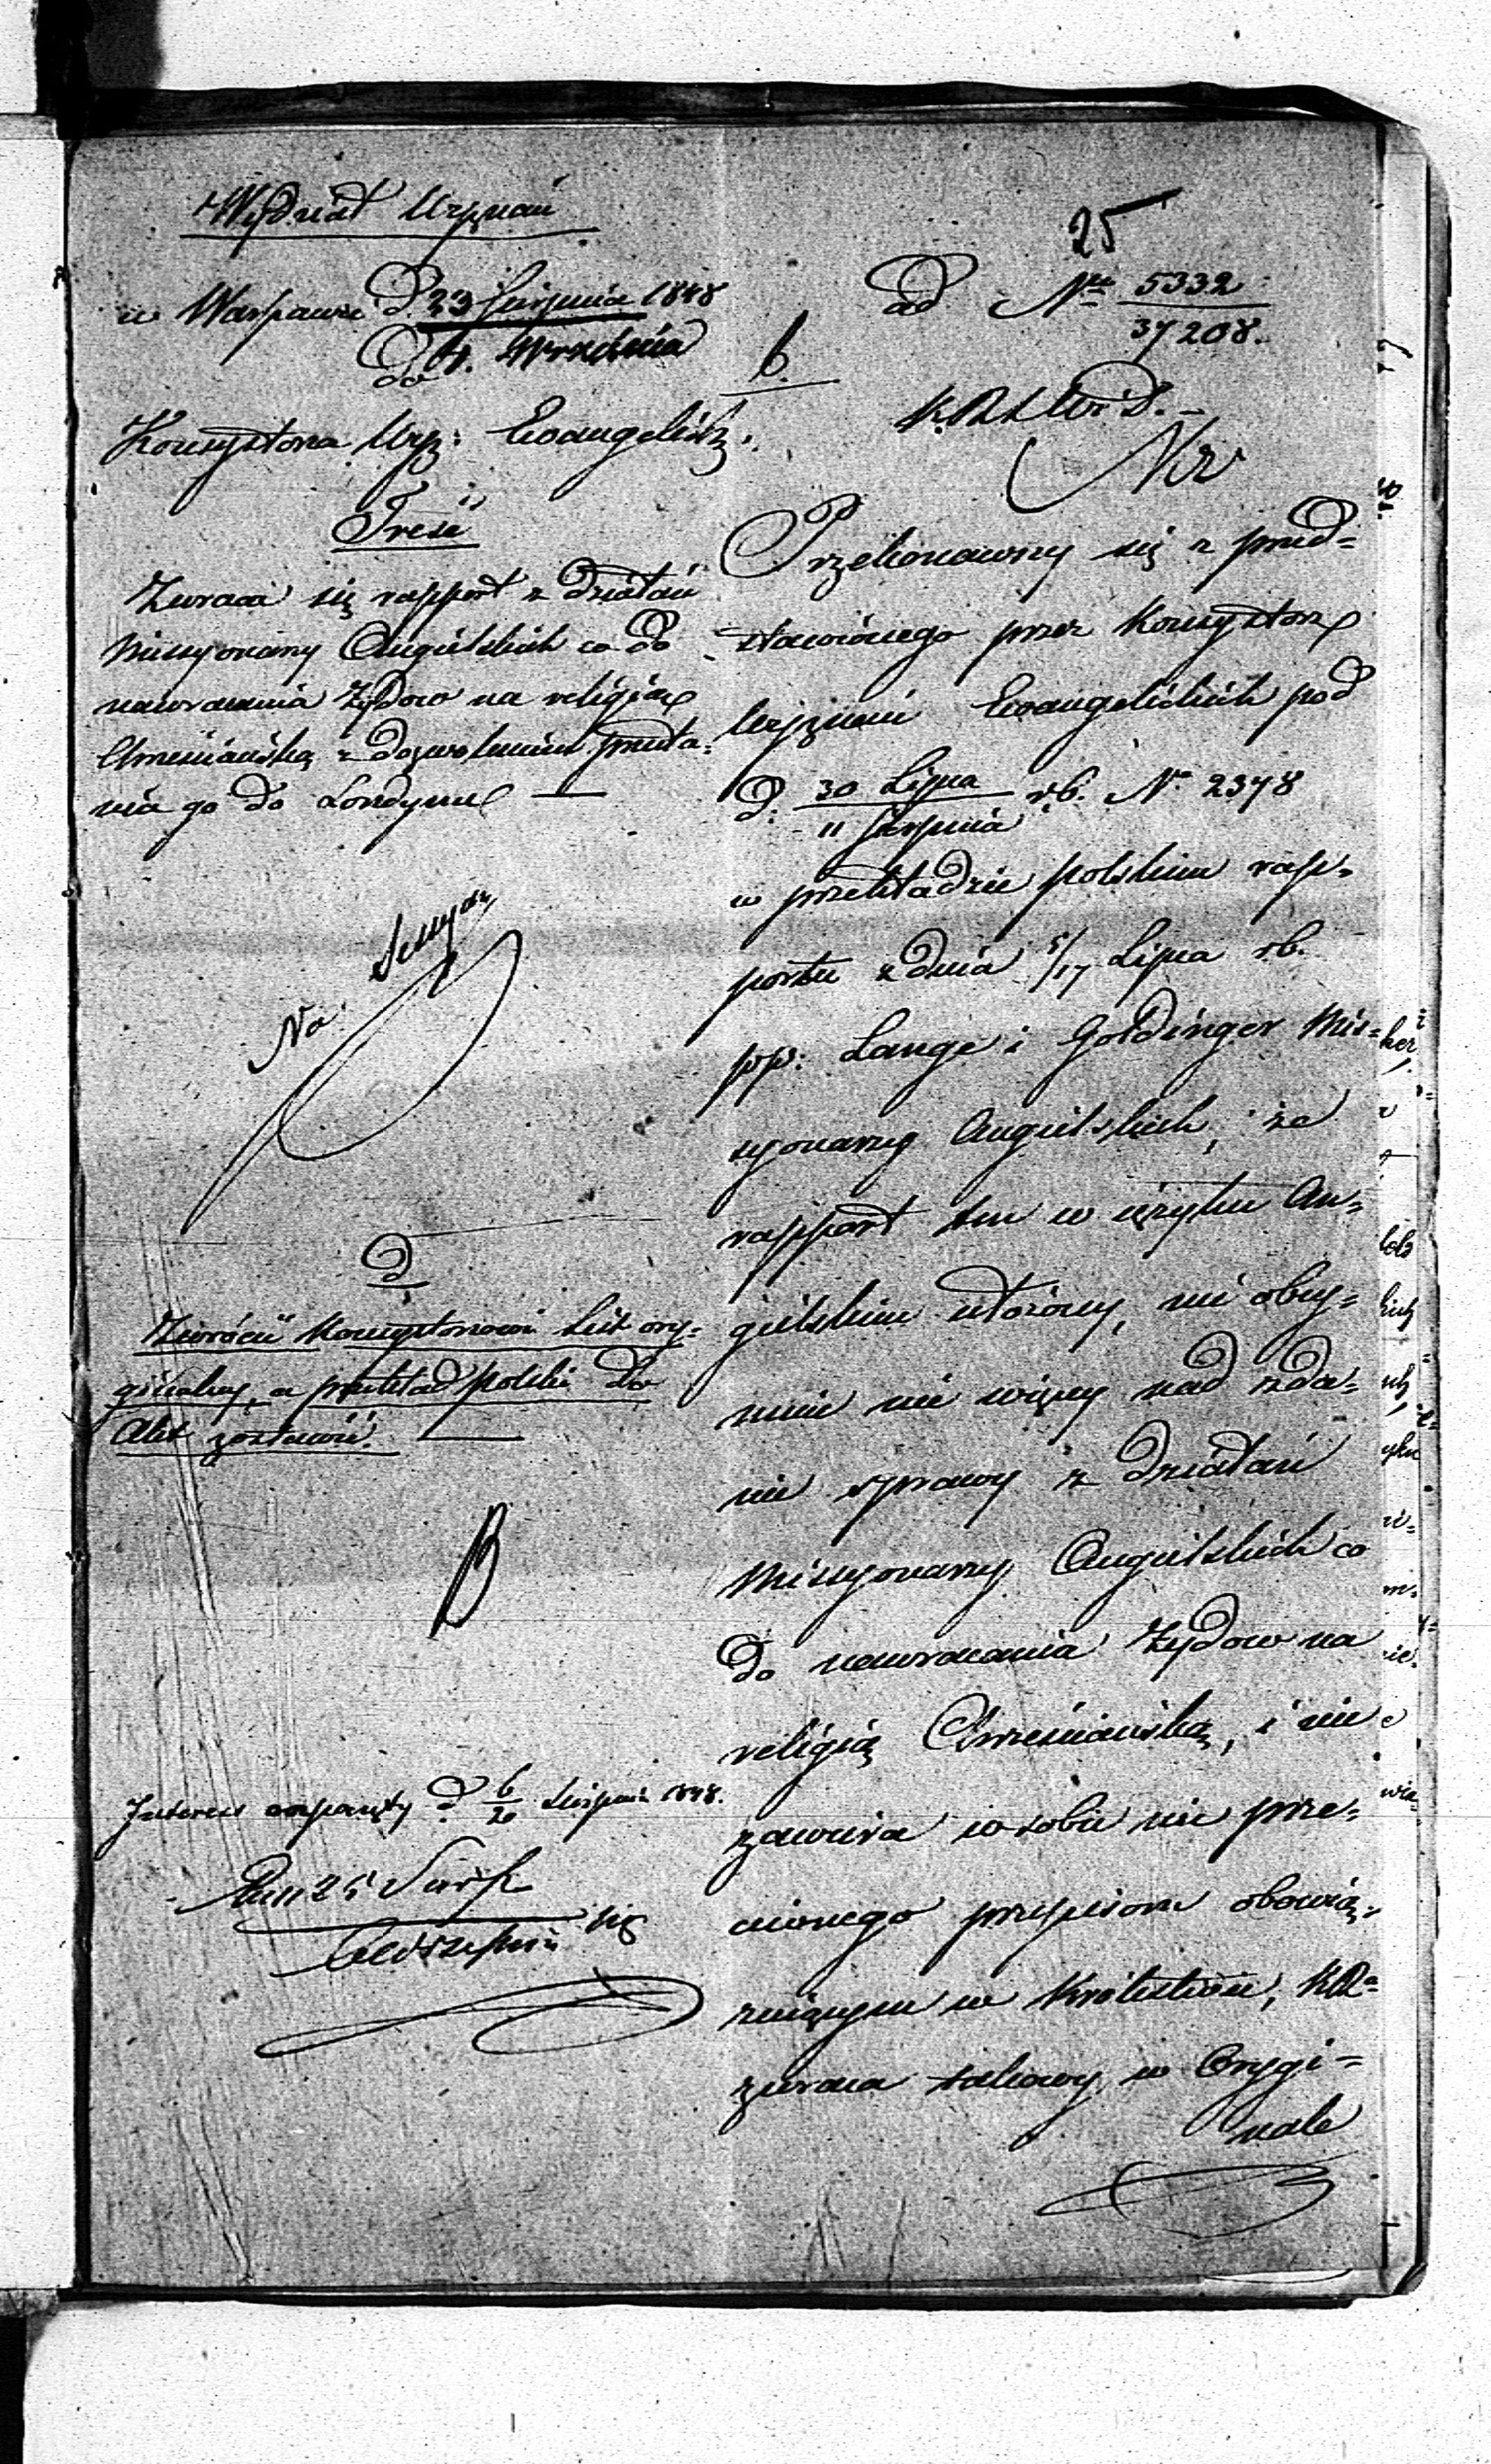 Wydział Wyznań
25
w Warszawie d. 23 Sierpnia 1848
4. Września
do
ad Nr 5332
37208.
b.
Konsystorza Wyz: Ewangelick:
K.R.S.W. i D.
Treść
Zwraca się rapport z działań
Missyonarzy Angielskich co do
nawracania Żydow na religię
Chrześciańską z dozwoleniem przesła-
nia go do Londynu —
Na Sessyą
D.
Zwrócić Konsystorzowi List ory-
ginalny, a przekład polski do
Akt zostawić. —
B
Interes wzięty d. 6/20 Sierpnia 1848.
25 Sierp
Przekonawszy się z przed-
stawionego przez Konsystorz
Wyznań Ewangelickich pod
d: 30 Lipca r.b. Nr 2378
11 Sierpnia
w przekładzie polskim rap-
portu z dnia 5/17 Lipca r.b.
pp: Lange i Goldinger Mis-
syonarzy Angielskich, że
rapport ten w języku An-
gielskim ułożony, nie obej-
muie nic więcey nad zda-
nie sprawy z działań
Missyonarzy Angielskich co
do nawracania Żydow na
religią Chrześciańską, i nie
zawiera w sobie nic prze-
ciwnego przepisom obowią-
zuiącym w Królestwie, KR
zwraca takowy w Orygi-
nale